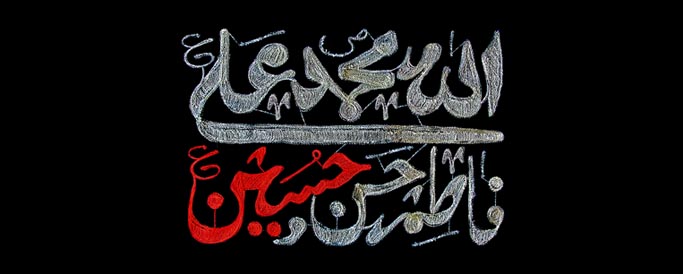 الله محمد علی
فاطمه حسن و حسین